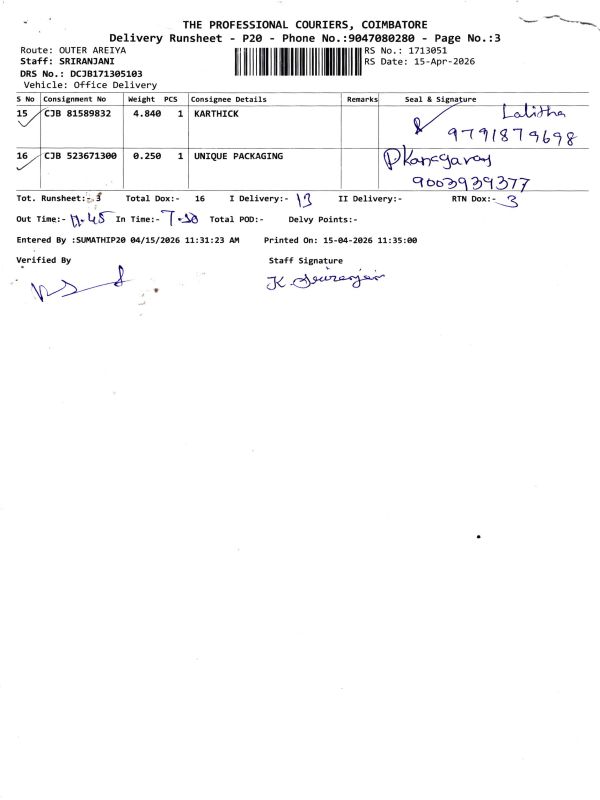 THE PROFESSIONAL COURIERS, COIMBATORE
Delivery Runsheet - P20 - Phone No.:9047080280 - Page No.:3
Route: OUTER AREIYA
RS No.: 1713051
Staff: SRIRANJANI
RS Date: 15-Apr-2026
DRS No.: DCJB171305103
Vehicle: Office Delivery
S No Consignment No Weight PCS Consignee Details Remarks Seal & Signature
15 CJB 81589832 4.840 1 KARTHICK Lalitha
9791879698
16 CJB 523671300 0.250 1 UNIQUE PACKAGING
9003939377
Tot. Runsheet:- 3 Total Dox:- 16 I Delivery:- 13 II Delivery:- RTN Dox:- 3
Out Time:- 11.45 In Time:- 7-30 Total POD:- Delvy Points:-
Entered By :SUMATHIP20 04/15/2026 11:31:23 AM Printed On: 15-04-2026 11:35:00
Verified By Staff Signature